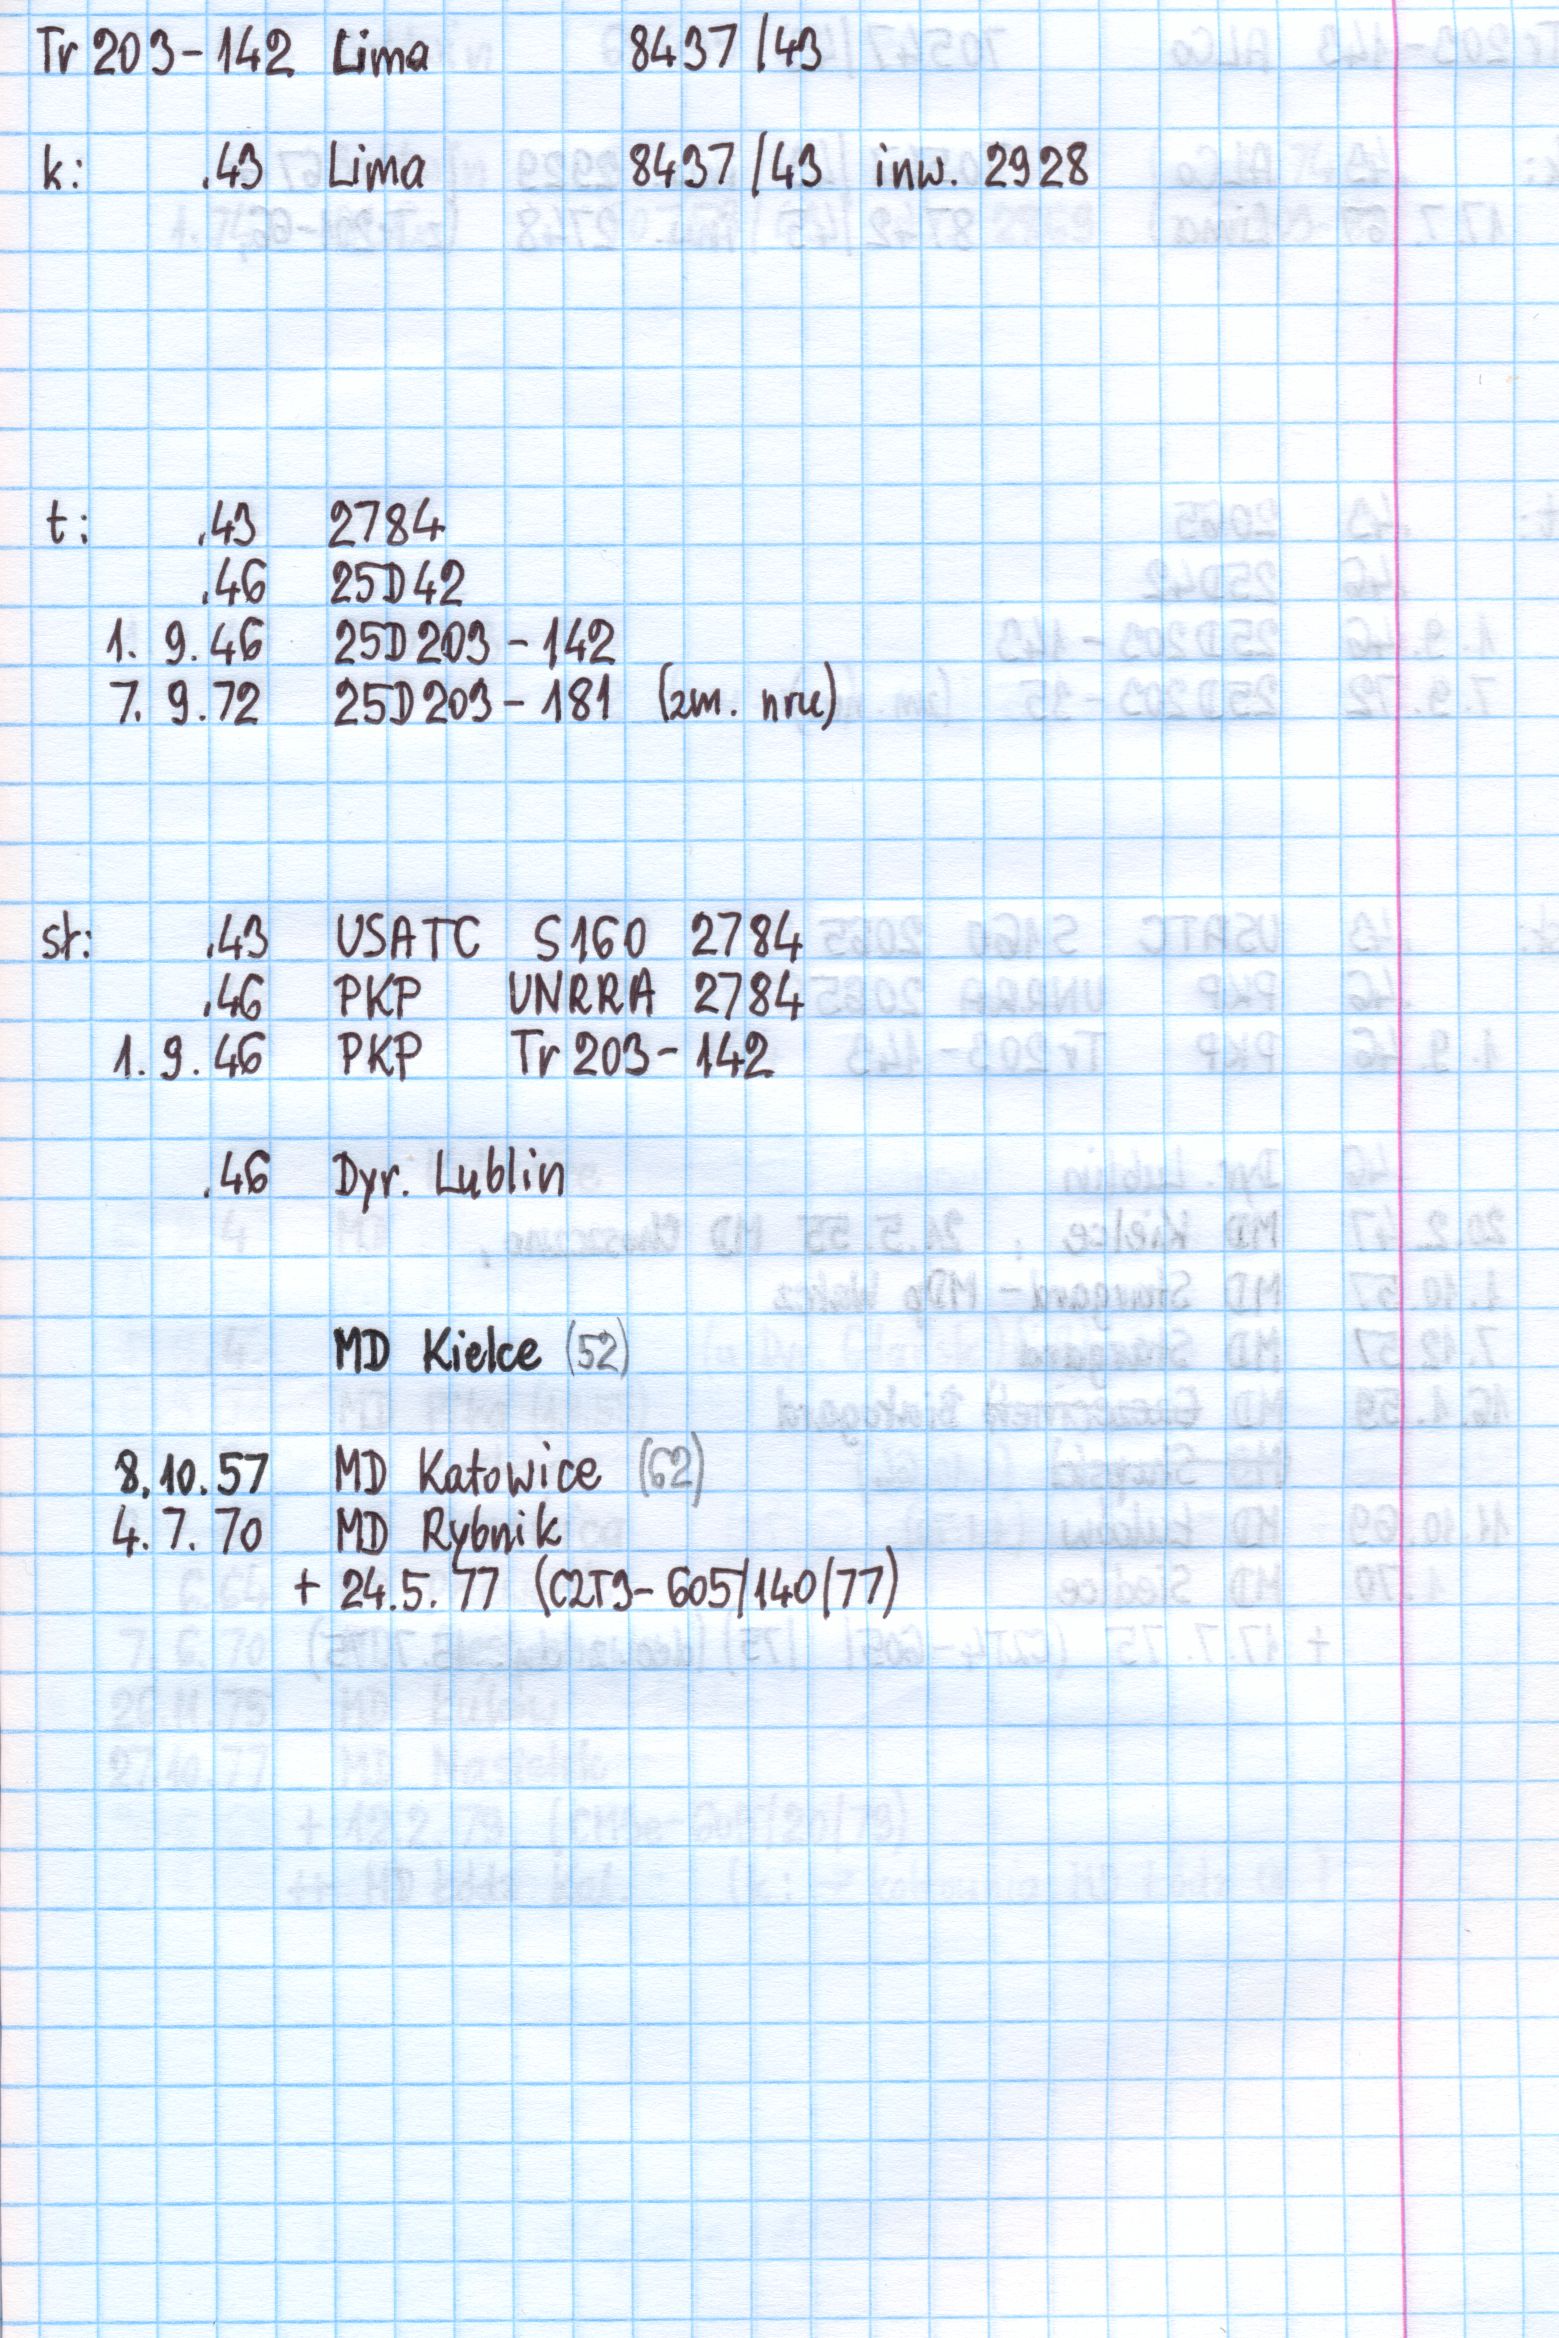 Tr 203-142 Lima 8437/43
k: .43 Lima 8437/43 inw. 2928
t: .43 2784
.46 25D42
1. 9.46 25D203-142
7. 9.72 25D203-181 (zm. nru)
st: .43 USATC S160 2784
.46 PKP UNRRA 2784
1.9.46 PKP Tr 203-142
.46 Dyr. Lublin
MD Kielce (52)
8.10.57 MD Katowice (62)
4.7.70 MD Rybnik
+ 24.5.77 (C2T3-605/140/77)